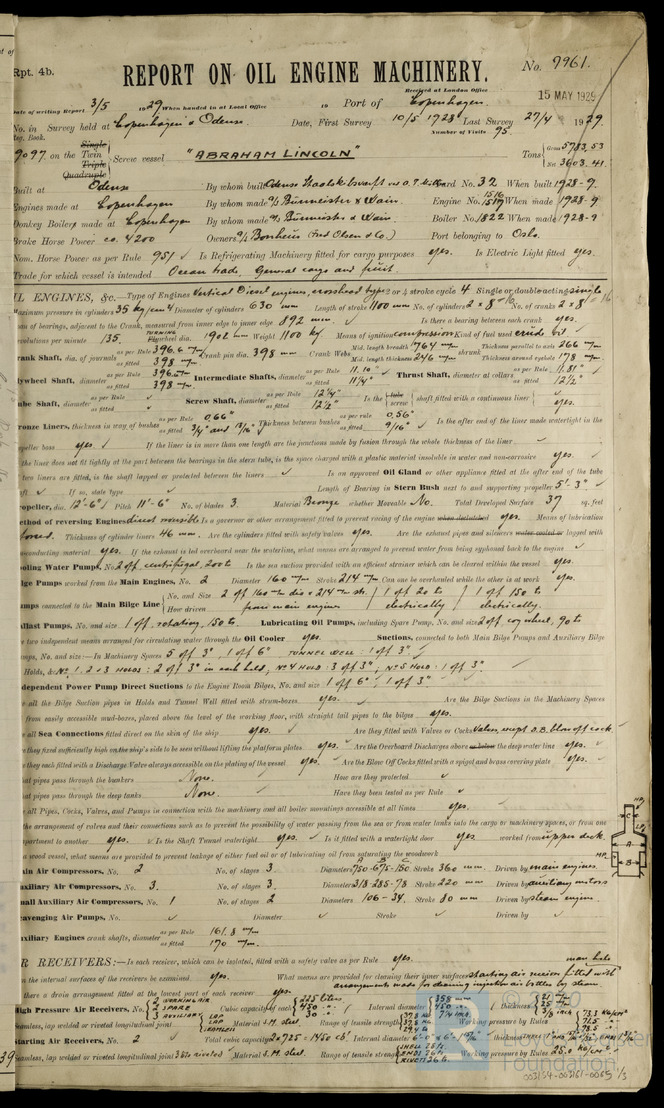 Rpt. 4b.
REPORT ON OIL ENGINE MACHINERY.
No. 9961.
Received at London Office
15 MAY 1929
Date of writing Report 3/5 1929 When handed in at Local Office 19 Port of Copenhagen.
No. in Survey held at Copenhagen & Odense. Date, First Survey 10/5 1928 Last Survey 27/4 1929.
Reg. Book. Number of Visits 95
9097. on the Single Twin Triple Quadruple Screw vessel "ABRAHAM LINCOLN" Tons Gross 5783.53 Net 3603.41.
Built at Odense By whom built Odense Staalskibsværft ved A.P. Møller Yard No. 32 When built 1928-9.
Engines made at Copenhagen By whom made A/S Burmeister & Wain. Engine No. 1516 1517 When made 1928-9.
Donkey Boilers made at Copenhagen By whom made A/S Burmeister & Wain. Boiler No. 1822 When made 1928-9
Brake Horse Power ca. 4200 Owners (Fred Olsen & Co.) Port belonging to Oslo.
Nom. Horse Power as per Rule 951 Is Refrigerating Machinery fitted for cargo purposes yes. Is Electric Light fitted yes.
Trade for which vessel is intended Ocean trade, General cargo and fruit.
OIL ENGINES, &c. Type of Engines Vertical Diesel engines, crosshead type 2 or 4 stroke cycle 4 Single or double acting single
Maximum pressure in cylinders 35 kg/cm² Diameter of cylinders 630 mm Length of stroke 1100 mm No. of cylinders 2 x 8 = 16 No. of cranks 2 x 8 = 16
Span of bearings, adjacent to the Crank, measured from inner edge to inner edge 892 mm. Is there a bearing between each crank yes.
Revolutions per minute 135. Flywheel dia. 1902 mm Weight 1100 kg Means of ignition compression Kind of fuel used crude oil
Crank Shaft, dia. of journals as per Rule 396.6 as fitted 398 Crank pin dia. 398 mm Crank Webs Mid. length breadth 764 mm Mid. length thickness 246 mm shrunk Thickness parallel to axis 266 Thickness around eyehole 178
Flywheel Shaft, diameter as per Rule 396.5 as fitted 398 Intermediate Shafts, diameter as per Rule 11.10" as fitted 11 1/4" Thrust Shaft, diameter at collars as per Rule 11.81" as fitted 12 1/2"
Tube Shaft, diameter as per Rule as fitted Screw Shaft, diameter as per Rule 12 1/4" as fitted 12 1/2" Is the tube screw shaft fitted with a continuous liner yes.
Bronze Liners, thickness in way of bushes as per Rule 0.66" as fitted 3/4" and 13/16" Thickness between bushes as per rule 0.56" as fitted 9/16" Is the after end of the liner made watertight in the
propeller boss yes If the liner is in more than one length are the junctions made by fusion through the whole thickness of the liner
If the liner does not fit tightly at the part between the bearings in the stern tube, is the space charged with a plastic material insoluble in water and non-corrosive yes.
If two liners are fitted, is the shaft lapped or protected between the liners Is an approved Oil Gland or other appliance fitted at the after end of the tube
shaft If so, state type Length of Bearing in Stern Bush next to and supporting propeller 5'-3"
Propeller, dia. 12'-6" Pitch 11'-6" No. of blades 3 Material Bronze whether Moveable No. Total Developed Surface 37 sq. feet
Method of reversing Engines direct reversible Is a governor or other arrangement fitted to prevent racing of the engine when declutched yes. Means of lubrication
forced. Thickness of cylinder liners 46 mm. Are the cylinders fitted with safety valves yes. Are the exhaust pipes and silencers water cooled or lagged with
non-conducting material yes. If the exhaust is led overboard near the waterline, what means are arranged to prevent water from being syphoned back to the engine
Cooling Water Pumps, No. 2 off centrifugal, 200 to Is the sea suction provided with an efficient strainer which can be cleared within the vessel yes.
Bilge Pumps worked from the Main Engines, No. 2 Diameter 160 mm Stroke 214 mm Can one be overhauled while the other is at work yes.
Pumps connected to the Main Bilge Line No. and Size 2 off 160 mm dia x 214 mm str. 1 off 20 to 1 off 150 to
How driven from main engines electrically electrically.
Ballast Pumps, No. and size 1 off rotating, 150 to. Lubricating Oil Pumps, including Spare Pump, No. and size 2 off cog wheel, 90 to
Are two independent means arranged for circulating water through the Oil Cooler yes. Suctions, connected to both Main Bilge Pumps and Auxiliary Bilge
Pumps, No. and size:—In Machinery Spaces 5 off 3", 1 off 6" TUNNEL WELL: 1 off 3"
In Holds, &c. No. 1. 2 & 3 HOLDS: 2 off 3" in each held, No. 4 HOLD: 3 off 3", No. 5 HOLD: 1 off 3".
Independent Power Pump Direct Suctions to the Engine Room Bilges, No. and size 1 off 6", 1 off 3"
Are all the Bilge Suction pipes in Holds and Tunnel Well fitted with strum-boxes yes. Are the Bilge Suctions in the Machinery Spaces
led from easily accessible mud-boxes, placed above the level of the working floor, with straight tail pipes to the bilges yes.
Are all Sea Connections fitted direct on the skin of the ship yes. Are they fitted with Valves or Cocks Valves, except D.B. blow off cock
Are they fixed sufficiently high on the ship's side to be seen without lifting the platform plates yes. Are the Overboard Discharges above or below the deep water line yes.
Are they each fitted with a Discharge Valve always accessible on the plating of the vessel yes. Are the Blow Off Cocks fitted with a spigot and brass covering plate yes.
What pipes pass through the bunkers None. How are they protected
What pipes pass through the deep tanks None. Have they been tested as per Rule
Are all Pipes, Cocks, Valves, and Pumps in connection with the machinery and all boiler mountings accessible at all times yes.
Is the arrangement of valves and their connections such as to prevent the possibility of water passing from the sea or from water tanks into the cargo or machinery spaces, or from one
compartment to another yes. Is the Shaft Tunnel watertight yes. Is it fitted with a watertight door yes worked from upper deck.
If a wood vessel, what means are provided to prevent leakage of either fuel oil or of lubricating oil from saturating the woodwork
Main Air Compressors, No. 2 No. of stages 3. Diameters A 750 - B 675 - C 150 Stroke 360 mm. Driven by main engines.
Auxiliary Air Compressors, No. 3. No. of stages 3. Diameters 318-285-78 Stroke 220 mm. Driven by auxiliary motors
Small Auxiliary Air Compressors, No. 1 No. of stages 2 Diameters 106-34. Stroke 80 mm Driven by steam engine.
Scavenging Air Pumps, No. Diameter Stroke Driven by
Auxiliary Engines crank shafts, diameter as per Rule 161.8 mm as fitted 170 mm.
AIR RECEIVERS:—Is each receiver, which can be isolated, fitted with a safety valve as per Rule yes. man hole
Can the internal surfaces of the receivers be examined yes. What means are provided for cleaning their inner surfaces starting air receiver fitted with
Is there a drain arrangement fitted at the lowest part of each receiver yes. arrangements made for cleaning injection air bottles by steam.
High Pressure Air Receivers, No. 2 WORKING AIR 2 SPARE 3 AUXILIARY Cubic capacity of each 225 liters 450 30 Internal diameter 358 mm 450 thickness
Seamless, lap welded or riveted longitudinal joint Material S.M. steel. Range of tensile strength Working pressure by Rules
Starting Air Receivers, No. 2 Total cubic capacity 2 x 725 = 1450 cb' Internal diameter thickness
Seamless, lap welded or riveted longitudinal joint riveted Material S.M. steel. Range of tensile strength Working pressure by Rules 25.0
Lloyd's Register Foundation